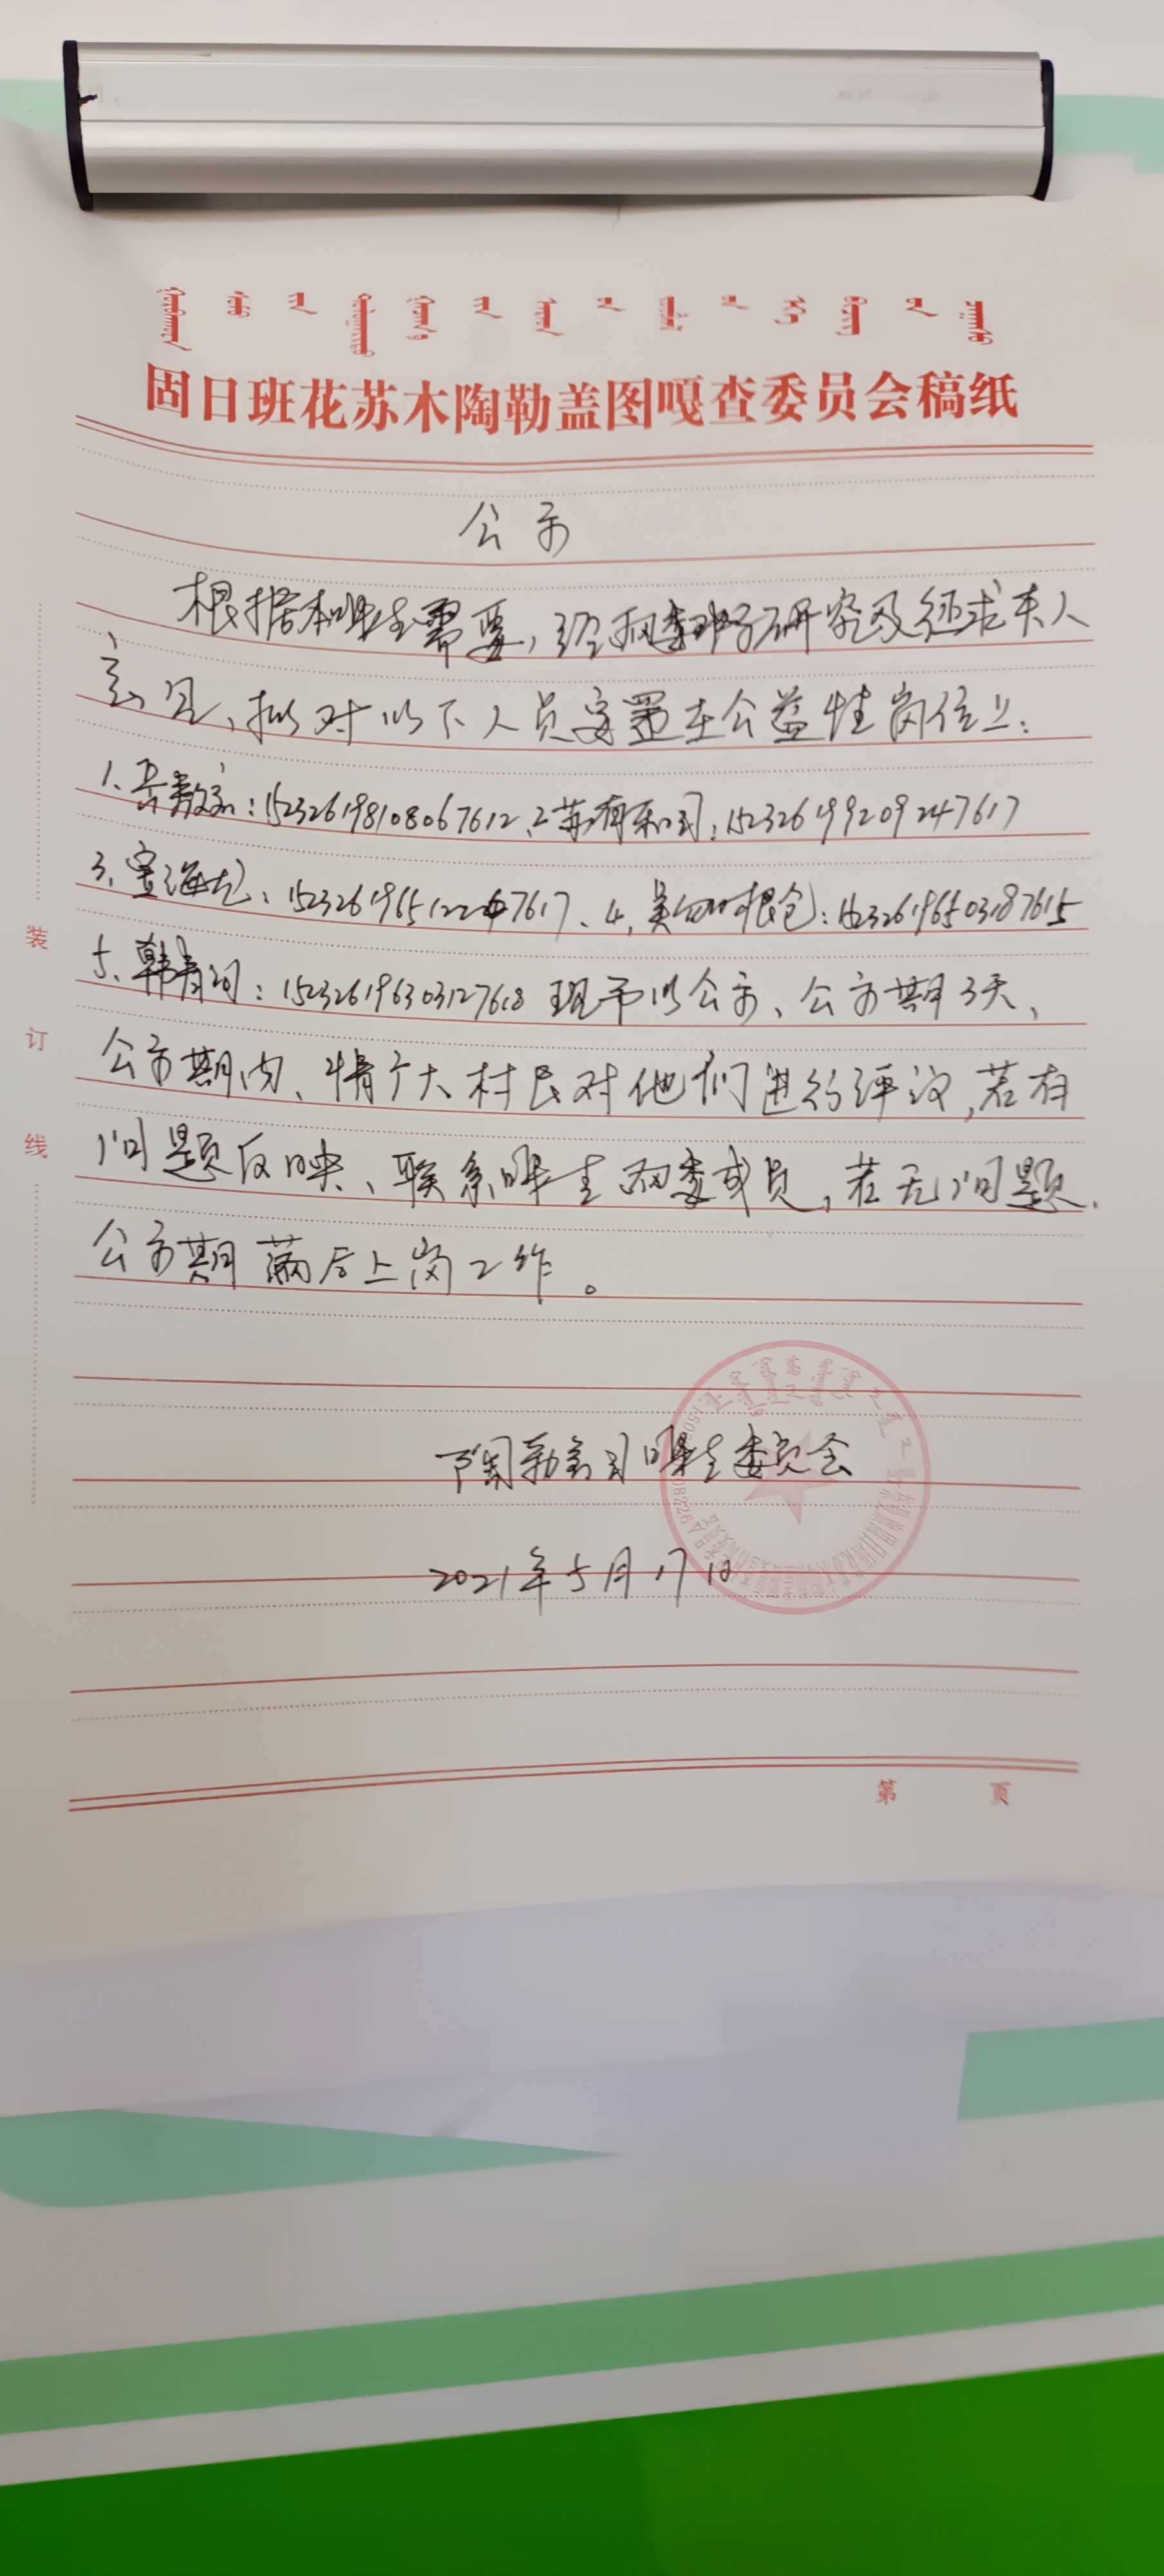 固日班花苏木陶勒盖图嘎查委员会稿纸
公示
根据本嘎查需要，经两委班子研究及征求本人
意见，拟对以下人员安置在公益性岗位上：
1、：152326198108067612、2：152326199209247617
3、宝海龙：1523261965122 7617、4、吴 根仓：152326196503187615
5、韩青河：152326196303127618 现予以公示、公示期3天、
公示期内、请广大村民对他们进行评议，若有
问题反映、联系嘎查两委成员，若无问题、
公示期满后上岗工作。
陶勒盖图嘎查委员会
2021年5月17日
装
订
线
第 页